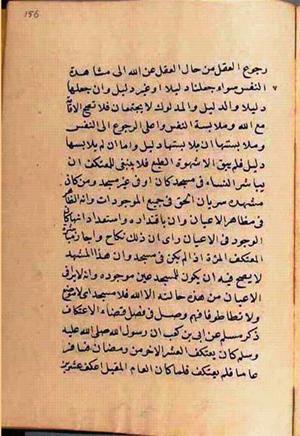 156
رجوع العقل من حال العقل عن الله الى مشاهدة
النفس سواء جعلها دليلا او غير دليل وان جعلها
دليلا والدليل والمدلول لا يجتمعان فلا تصح الاقامة
مع الله وملابسة النفس واعلى الرجوع الى النفس
وملابستها ان يلابسها دليلا واما ان لم يلابسها
دليل فلم يبق الا شهوة الطبع فلا ينبغي للمعتكف ان
يباشر النساء في مسجد كان او في غير مسجد ومن كان
مشهده سريان الحق في جميع الموجودات وانه الظاهر
في مظاهر الاعيان وان باقتداره واستعدادها كان
الوجود في الاعيان راى ان ذلك نكاح واجاز مباشرة
المعتكف المرأة اذ لم يكن في مسجد وان هذا المشهد
لا يصح فيه ان يكون للمسجد عين موجودة وانه لا يرى
الاعيان من هذه حالته الا الله فلا مسجد اي لا موضع
ولا تطاطؤ فافهم وصل في فصل قضاء الاعتكاف
ذكر مسلم عن ابي بن كعب ان رسول الله صلى الله عليه
وسلم كان يعتكف العشر الاخر من رمضان فسافر
عاما فلم يعتكف فلما كان العام المقبل اعتكف عشرين